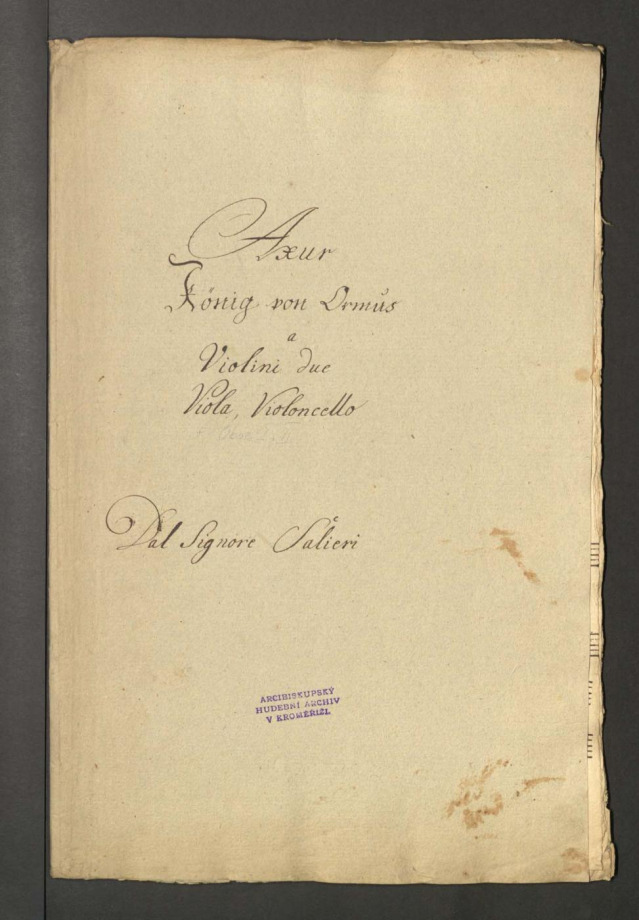 Axur
König von Ormus
a
Violini due
Viola, Violoncello
Dal Signore Salieri
ARCIBISKUPSKÝ
HUDEBNÍ ARCHIV
V KROMĚŘÍŽI.